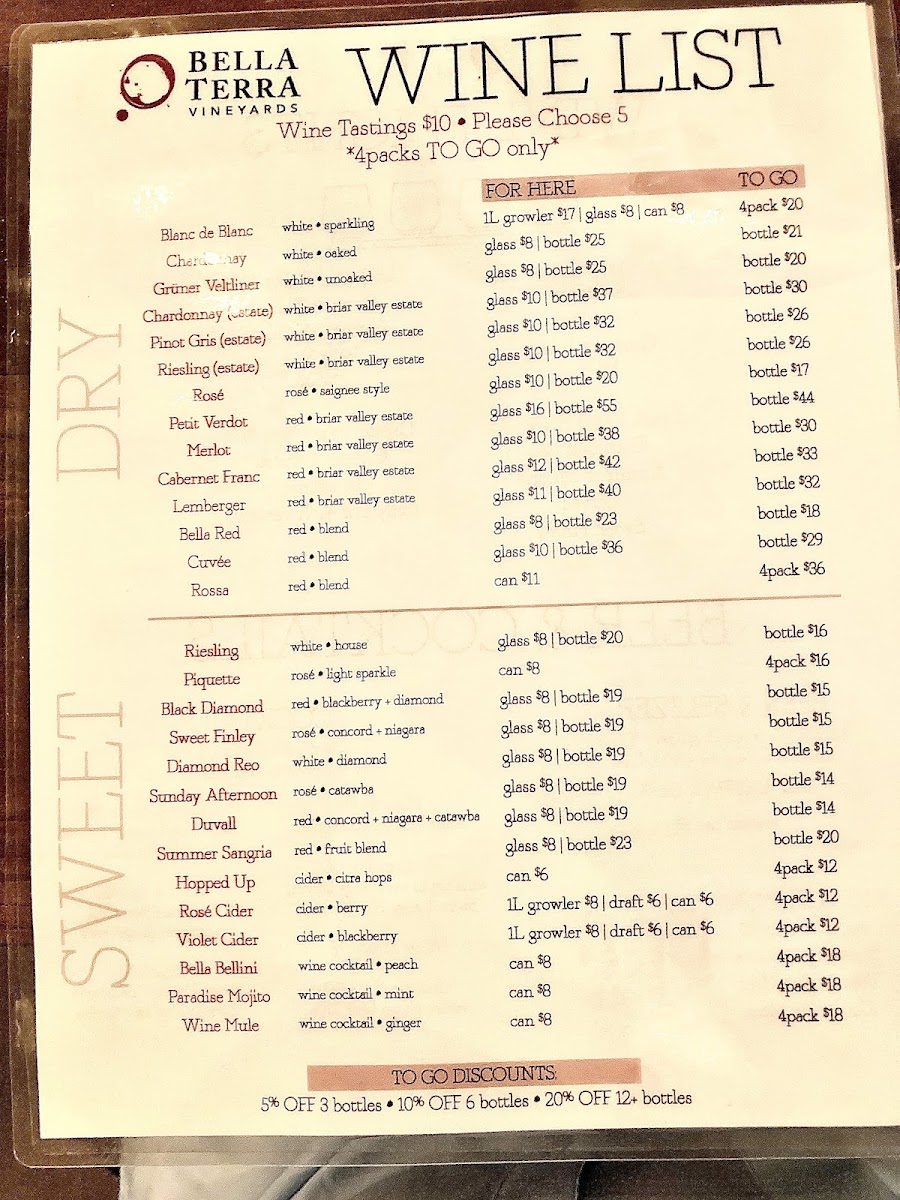 BELLA
TERRA
VINEYARDS
WINE LIST
Wine Tastings $10 • Please Choose 5
*4packs TO GO only*
FOR HERE TO GO
DRY
Blanc de Blanc white • sparkling 1L growler $17 | glass $8 | can $8 4pack $20
Chardonnay white • oaked glass $8 | bottle $25 bottle $21
Grüner Veltliner white • unoaked glass $8 | bottle $25 bottle $20
Chardonnay (estate) white • briar valley estate glass $10 | bottle $37 bottle $30
Pinot Gris (estate) white • briar valley estate glass $10 | bottle $32 bottle $26
Riesling (estate) white • briar valley estate glass $10 | bottle $32 bottle $26
Rosé rosé • saignee style glass $10 | bottle $20 bottle $17
Petit Verdot red • briar valley estate glass $16 | bottle $55 bottle $44
Merlot red • briar valley estate glass $10 | bottle $38 bottle $30
Cabernet Franc red • briar valley estate glass $12 | bottle $42 bottle $33
Lemberger red • briar valley estate glass $11 | bottle $40 bottle $32
Bella Red red • blend glass $8 | bottle $23 bottle $18
Cuvée red • blend glass $10 | bottle $36 bottle $29
Rossa red • blend can $11 4pack $36
SWEET
Riesling white • house glass $8 | bottle $20 bottle $16
Piquette rosé • light sparkle can $8 4pack $16
Black Diamond red • blackberry + diamond glass $8 | bottle $19 bottle $15
Sweet Finley rosé • concord + niagara glass $8 | bottle $19 bottle $15
Diamond Reo white • diamond glass $8 | bottle $19 bottle $15
Sunday Afternoon rosé • catawba glass $8 | bottle $19 bottle $14
Duvall red • concord + niagara + catawba glass $8 | bottle $19 bottle $14
Summer Sangria red • fruit blend glass $8 | bottle $23 bottle $20
Hopped Up cider • citra hops can $6 4pack $12
Rosé Cider cider • berry 1L growler $8 | draft $6 | can $6 4pack $12
Violet Cider cider • blackberry 1L growler $8 | draft $6 | can $6 4pack $12
Bella Bellini wine cocktail • peach can $8 4pack $18
Paradise Mojito wine cocktail • mint can $8 4pack $18
Wine Mule wine cocktail • ginger can $8 4pack $18
TO GO DISCOUNTS:
5% OFF 3 bottles • 10% OFF 6 bottles • 20% OFF 12+ bottles